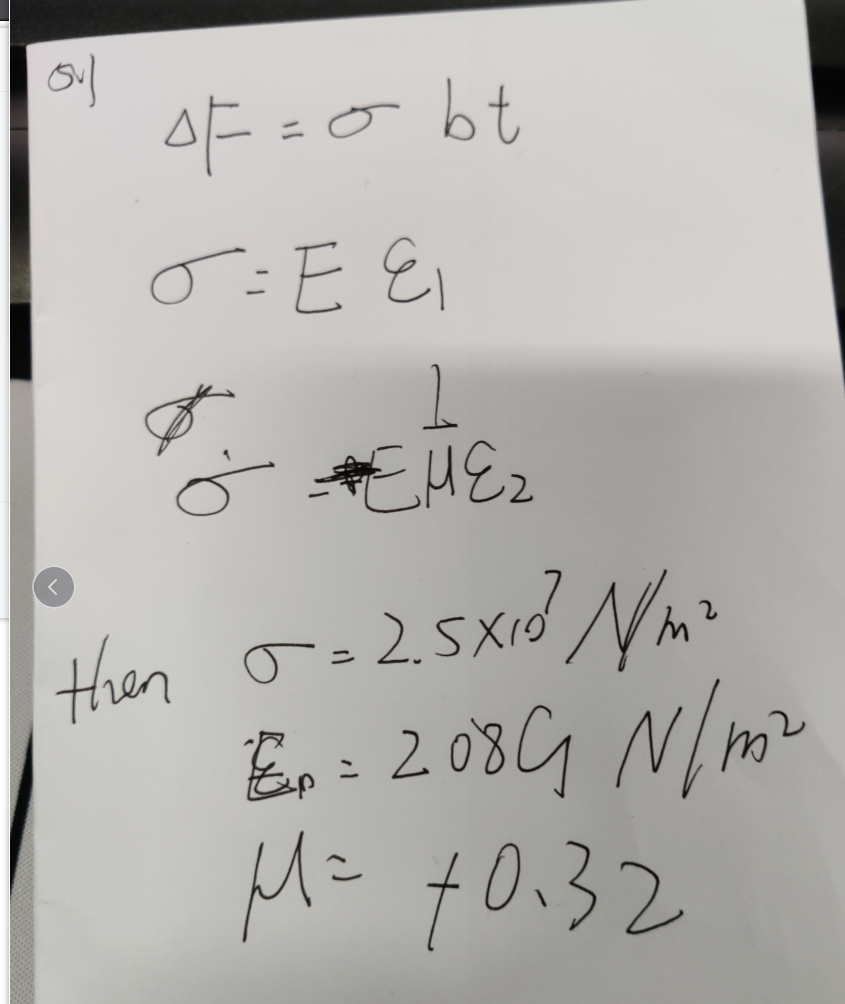 ΔF = σ bt
σ = E ε₁
1
σ = E μ ε₂
then σ = 2.5×10⁷ N/m²
E = 208G N/m²
μ = +0.32